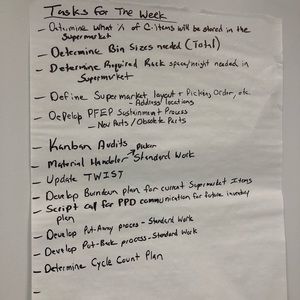 Tasks for The Week
- Determine what % of C-Items will be stored in the
Supermarket
- Determine Bin Sizes needed (Total)
- Determine Required Rack space/height needed in
Supermarket
- Define Supermarket layout + Picking Order, etc.
- Address/locations
- Develop PFEP Sustainment Process
- New Parts/Obsolete Parts
- Kanban Audits
Picker
- Material Handler Standard Work
- Update TWIST
- Develop Burndown plan for current Supermarket Items
- Script call for PPD communication for future inventory
plan
- Develop Put-Away proces - Standard Work
- Develop Put-Back process - Standard Work
- Determine Cycle Count Plan
-